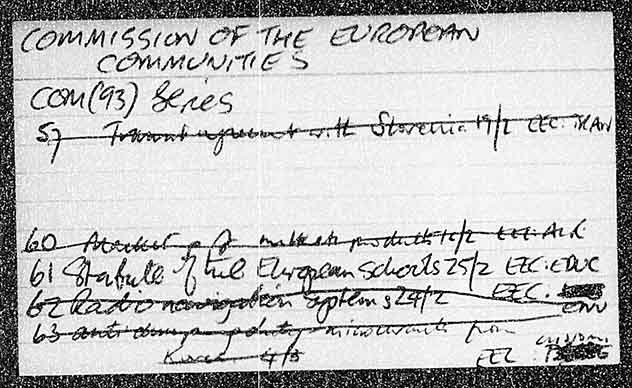 COMMISSION OF THE EUROPEAN
COMMUNITIES
COM(93) Series
57 Transit agreement with Slovenia 19/2 EEC:
60 products EEC:
61 Statute of the European Schools 25/2 EEC:EDUC
62 Radio navigation systems 24/2 EEC:
ENV
63 anti dumping duty microcircuits from
Korea 4/3 EEC: